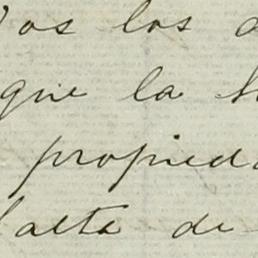 los
que la
propied
falta de